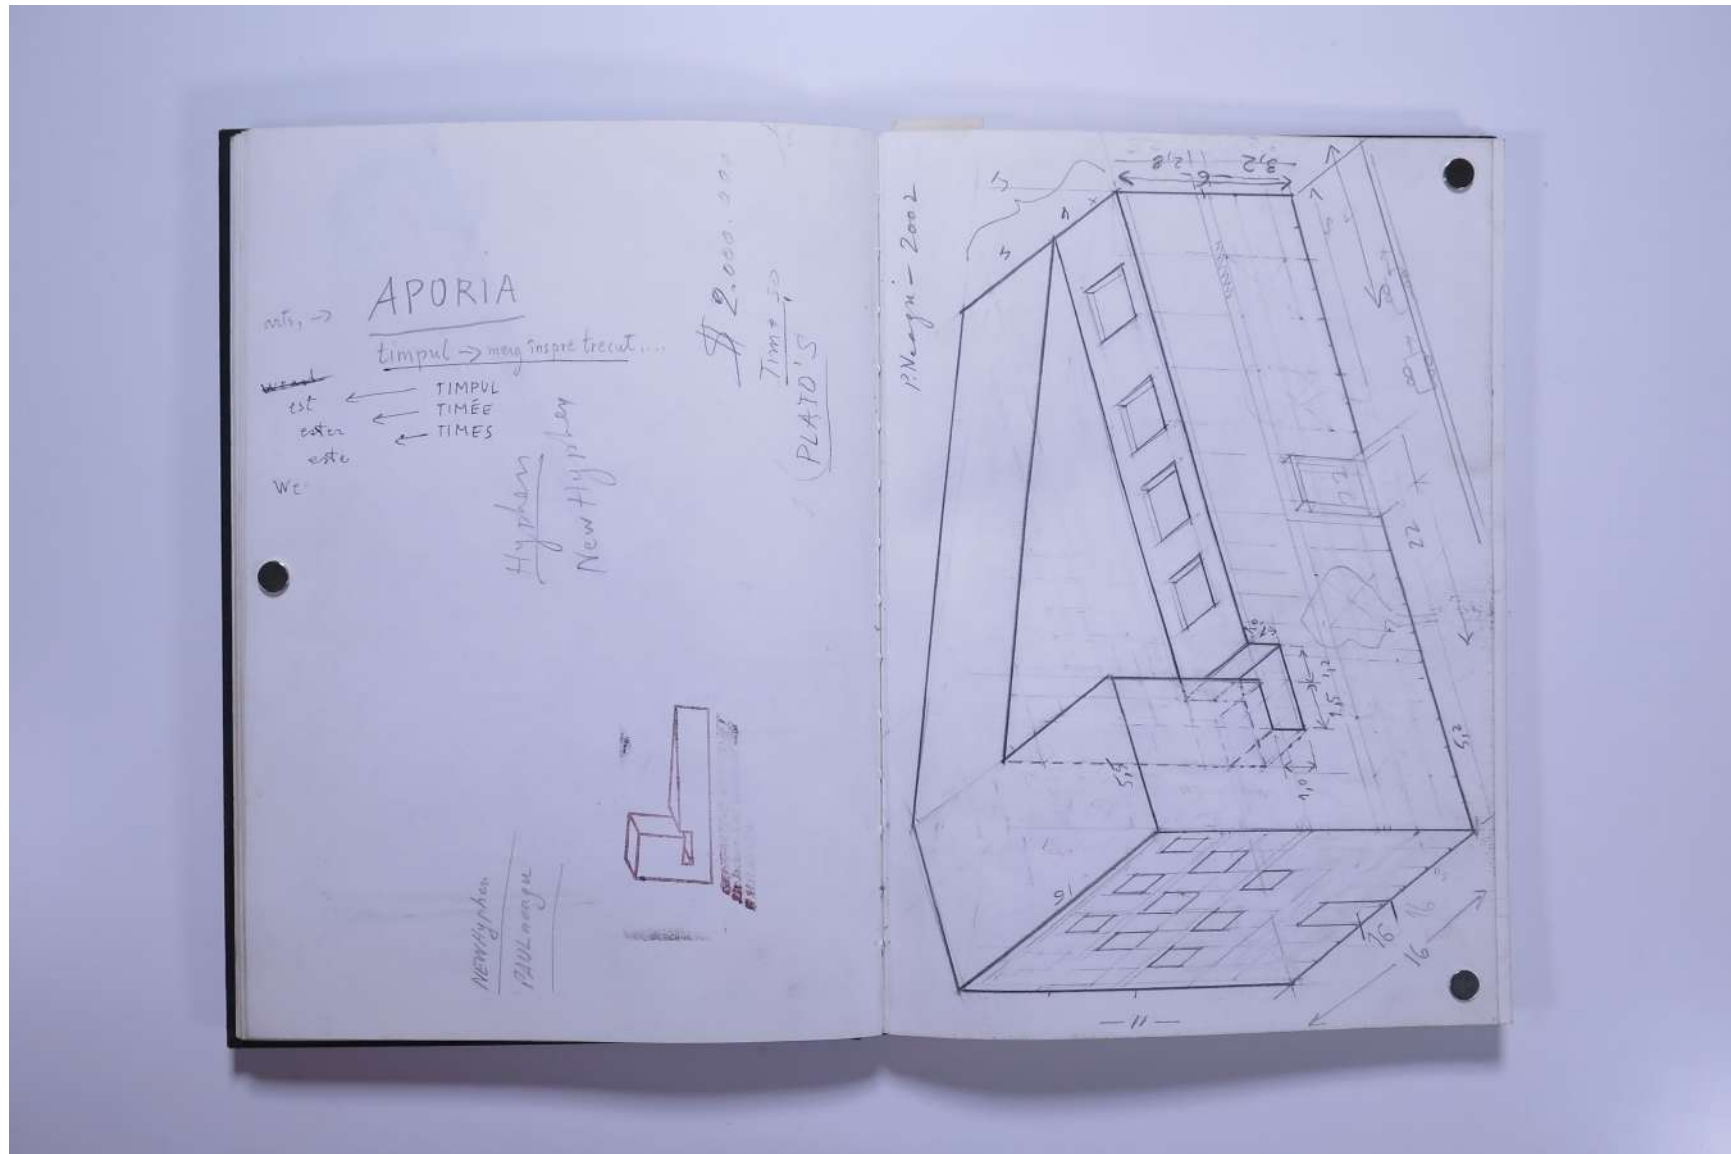 APORIA
timpul → merg înspre trecut....
est ← TIMPUL
ester ← TIMÉE
este ← TIMES
We
Hyphen
New Hyphen
$ 2.000.000
(PLATO'S
NEWHyphen
PAULneagu
P.Neagu - 2002
3,2
2,8
-6-
22
5,2
5,5
1,5
1,2
1,0
16
16
16
16
- 11 -